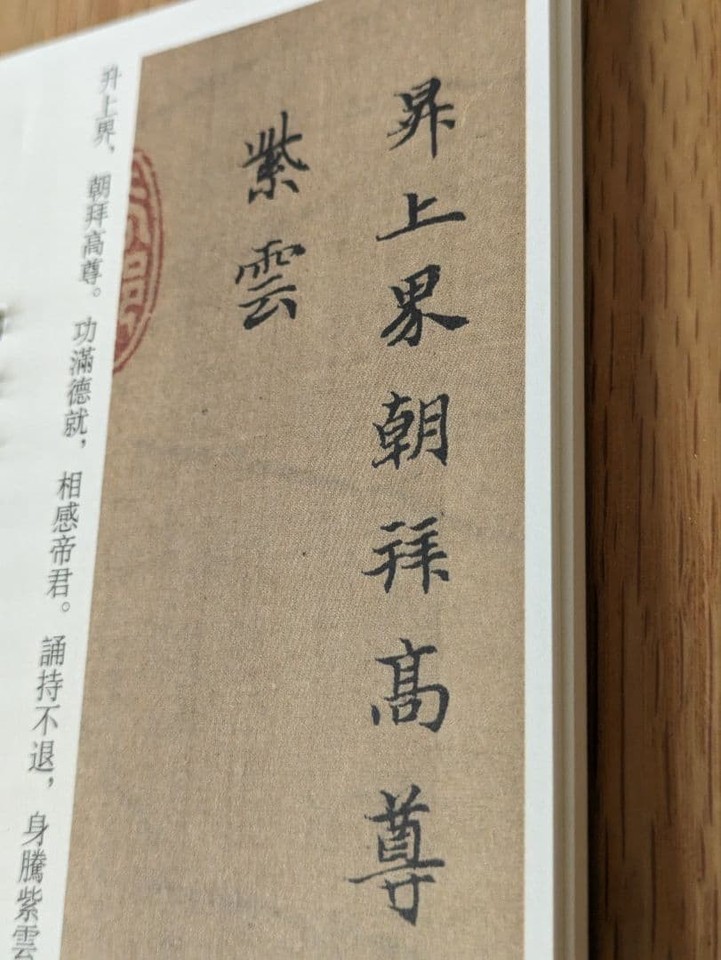 昇上界朝拜高尊
紫雲
升上界，朝拜高尊。功滿德就，相感帝君。誦持不退，身騰紫雲